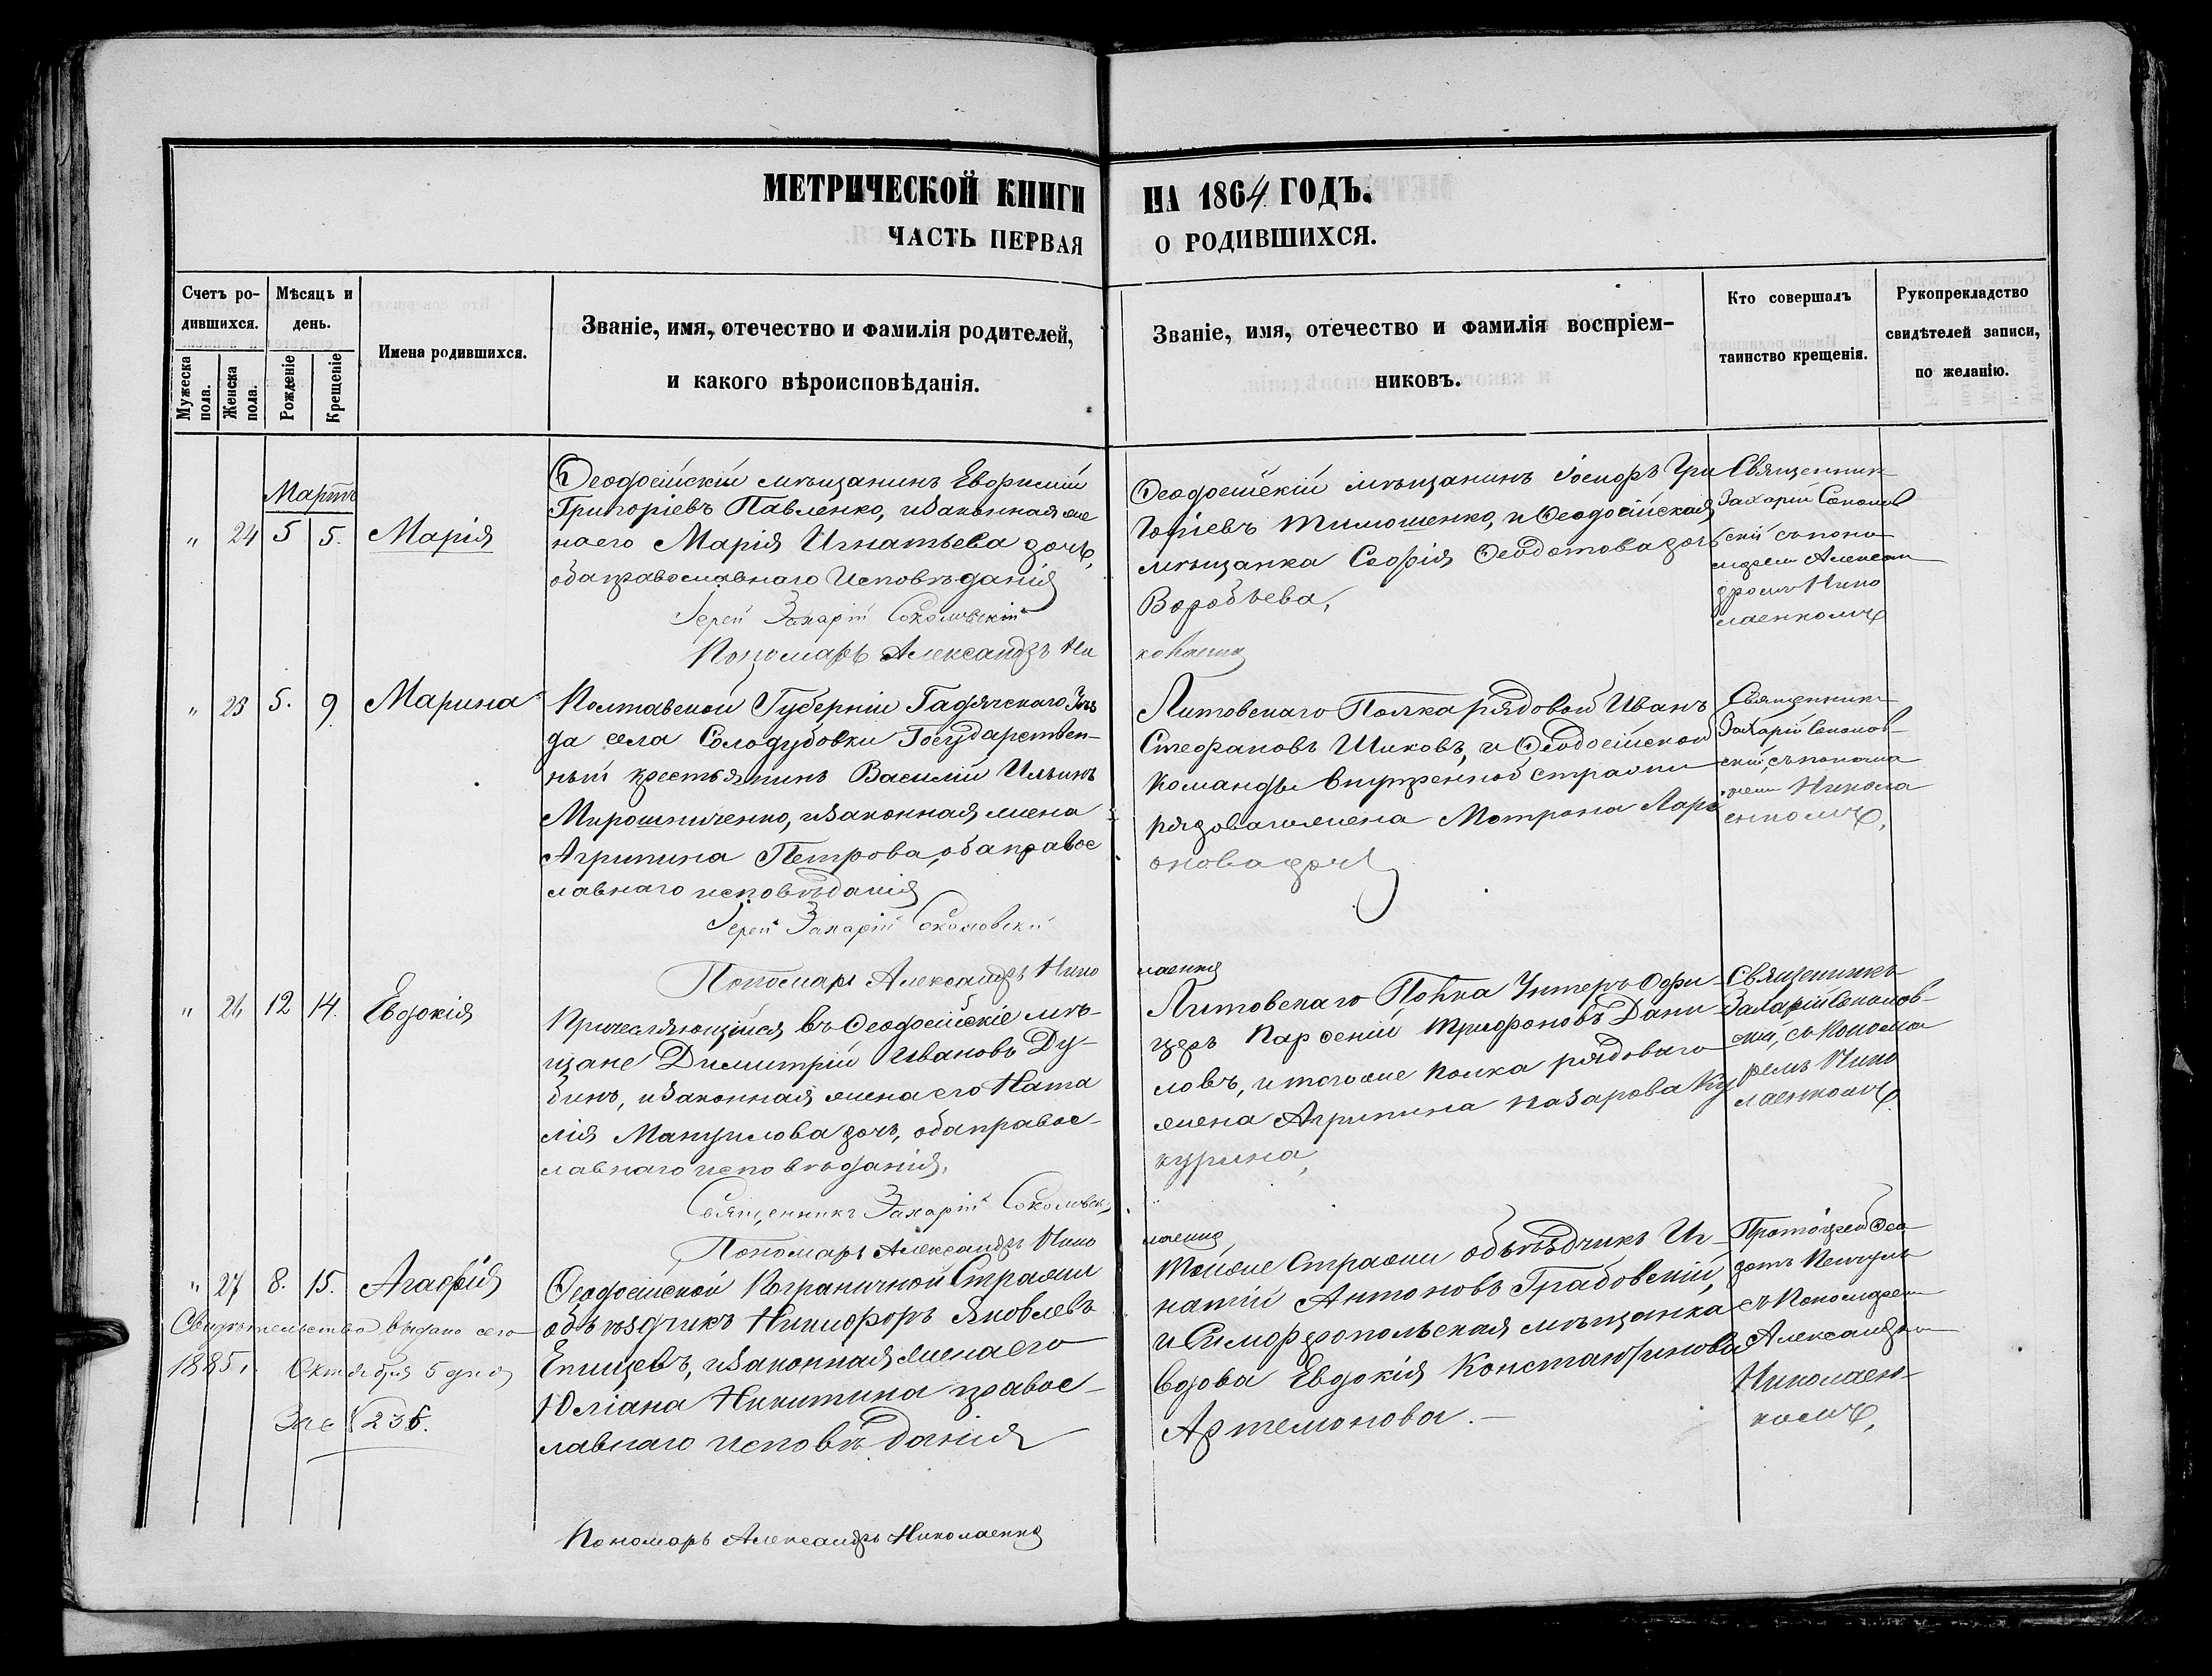 МЕТРИЧЕСКОЙ КНИГИ НА 1864 ГОДЪ.
ЧАСТЬ ПЕРВАЯ О РОДИВШИХСЯ.
Счетъ ро-
дившихся.
Мужеска пола.
Женска пола.
Мѣсяць и
день.
Рожденіе
Крещеніе
Имена родившихся.
Званіе, имя, отечество и фамилія родителей,
и какого вѣроисповѣданія.
Званіе, имя, отечество и фамилія воспріем-
никовъ.
Кто совершалъ
таинство крещенія.
Рукопрекладство
свидѣтелей записи,
по желанію.
Мартъ
" 24 5 5. Марія
Ѳеодосійскій мѣщанинъ Евфимій
Григоріевъ Павленко, и законная же
на его Марія Игнатьева дочь,
оба православнаго исповѣданія
Іерей Захарій Соколовскій
Пономарь Александръ Ни
Ѳеодосійскій мѣщанинъ Іосифъ Гри
горіевъ Тимошенко, и Ѳеодосійская
мѣщанка Софія Ѳеодотова дочь
Воробьева,
колаенко
Священник
Захарій Соколов
скій съ поно
марем Алексан
дромъ Нико
лаенкомъ
" 25 5. 9 Марина
Полтавской Губерніи Гадячскаго Уѣз
да села Солодубовки Государствен-
ный крестьянинъ Василій Ильинъ
Мирошниченко, и законная жена
Агрипина Петрова, оба правос
лавнаго исповѣданія
Іерей Захарій Соколовскій
Пономарь Александръ Нико
Литовскаго Полка рядовой Иванъ
Стефановъ Шиковъ, и Ѳеодосійской
Команды внутренной стражи
рядоваго жена Мотрона Лари
онова дочь
лаенко
Священник
Захарій Соколов-
скій, съ понома
рем Никола
енкомъ,
" 26 12 14. Евдокія
Причисляющійся въ Ѳеодосійскіе мѣ-
щане Димитрій Ивановъ Ду-
бинъ, и законная жена его Ната
лія Мануилова дочь, оба правос-
лавнаго исповѣданія,
Священникъ Захарій Соколовск.
Пономарь Александръ Нико
Литовскаго Полка Унтеръ Офи-
церъ Парѳеній Трифоновъ Дани-
ловъ, и того же полка рядоваго
жена Агрипина Назарова Ку
курина,
лаенко
Священникъ
Захарій Соколов-
скій, съ Понома
ремъ Нико
лаенкомъ
" 27 8. 15. Агафія
Ѳеодосійской Пограничной Стражи
объѣздчикъ Никифоръ Яковлевъ
Епищевъ, и законная жена его
Юліана Никитина правос-
лавнаго исповѣданія
Той же Стражи объѣздчикъ Иг-
натій Антоновъ Грабовскій,
и Симферопольская мѣщанка
вдова Евдокія Константинова
Артемонова. -
Протоіерей Ѳео
дотъ
съ Пономарем
Александром
Николаен-
комъ,
Свидѣтельство выдано сего
1885. Октября 5 дня
За № 235.
Пономарь Александръ Николаенко